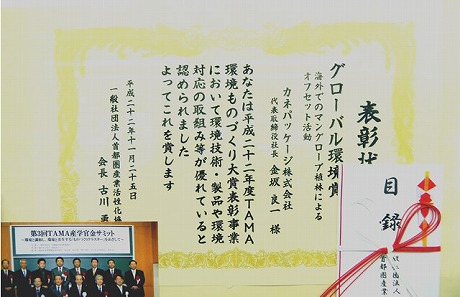 表彰状
グローバル環境賞
海外でのマングローブ植林による
オフセット活動
カネパッケージ株式会社
代表取締役社長 金坂良一 様
あなたは平成二十二年度TAMA
環境ものづくり大賞表彰事業
において環境技術・製品や環境
対応の取組み等が優れていると
認められました
よってこれを賞します
平成二十二年十一月二十五日
一般社団法人首都圏産業活性化協
会長 古川 勇
目録
首都圏産業
第3回TAMA産学官金サミット